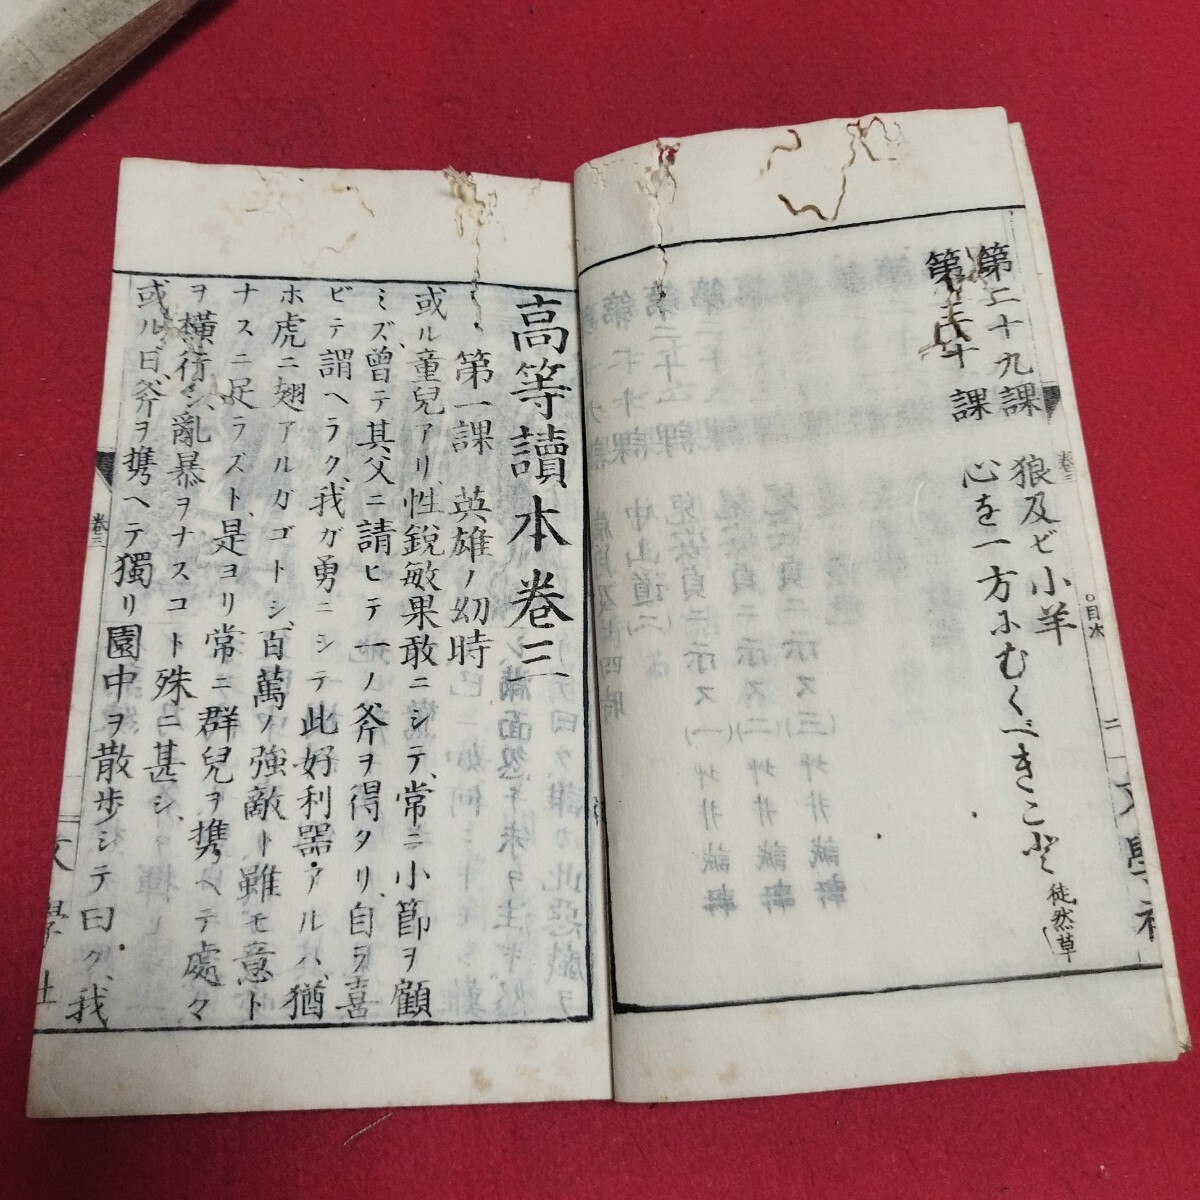 第二十九課　狼及ビ小羊
第三十課　心を一方にむくべきこと　徒然草
卷三
○目次
二
文學社
高等讀本卷三
第一課　英雄ノ幼時
或ル童兒アリ、性鋭敏果敢ニシテ、常ニ小節ヲ顧
ミズ、曾テ其父ニ請ヒテ一ノ斧ヲ得タリ、自ラ喜
ビテ謂ヘラク、我ガ勇ニシテ此好利器アルハ、猶
ホ虎ニ翅アルガゴトシ、百萬ノ強敵ト雖モ意ト
ナスニ足ラズト、是ヨリ常ニ群兒ヲ携ヘテ處々
ヲ橫行シ、亂暴ヲナスコト殊ニ甚シ、
或ル日、斧ヲ携ヘテ獨リ園中ヲ散歩シテ曰ク、我
卷三
文學社